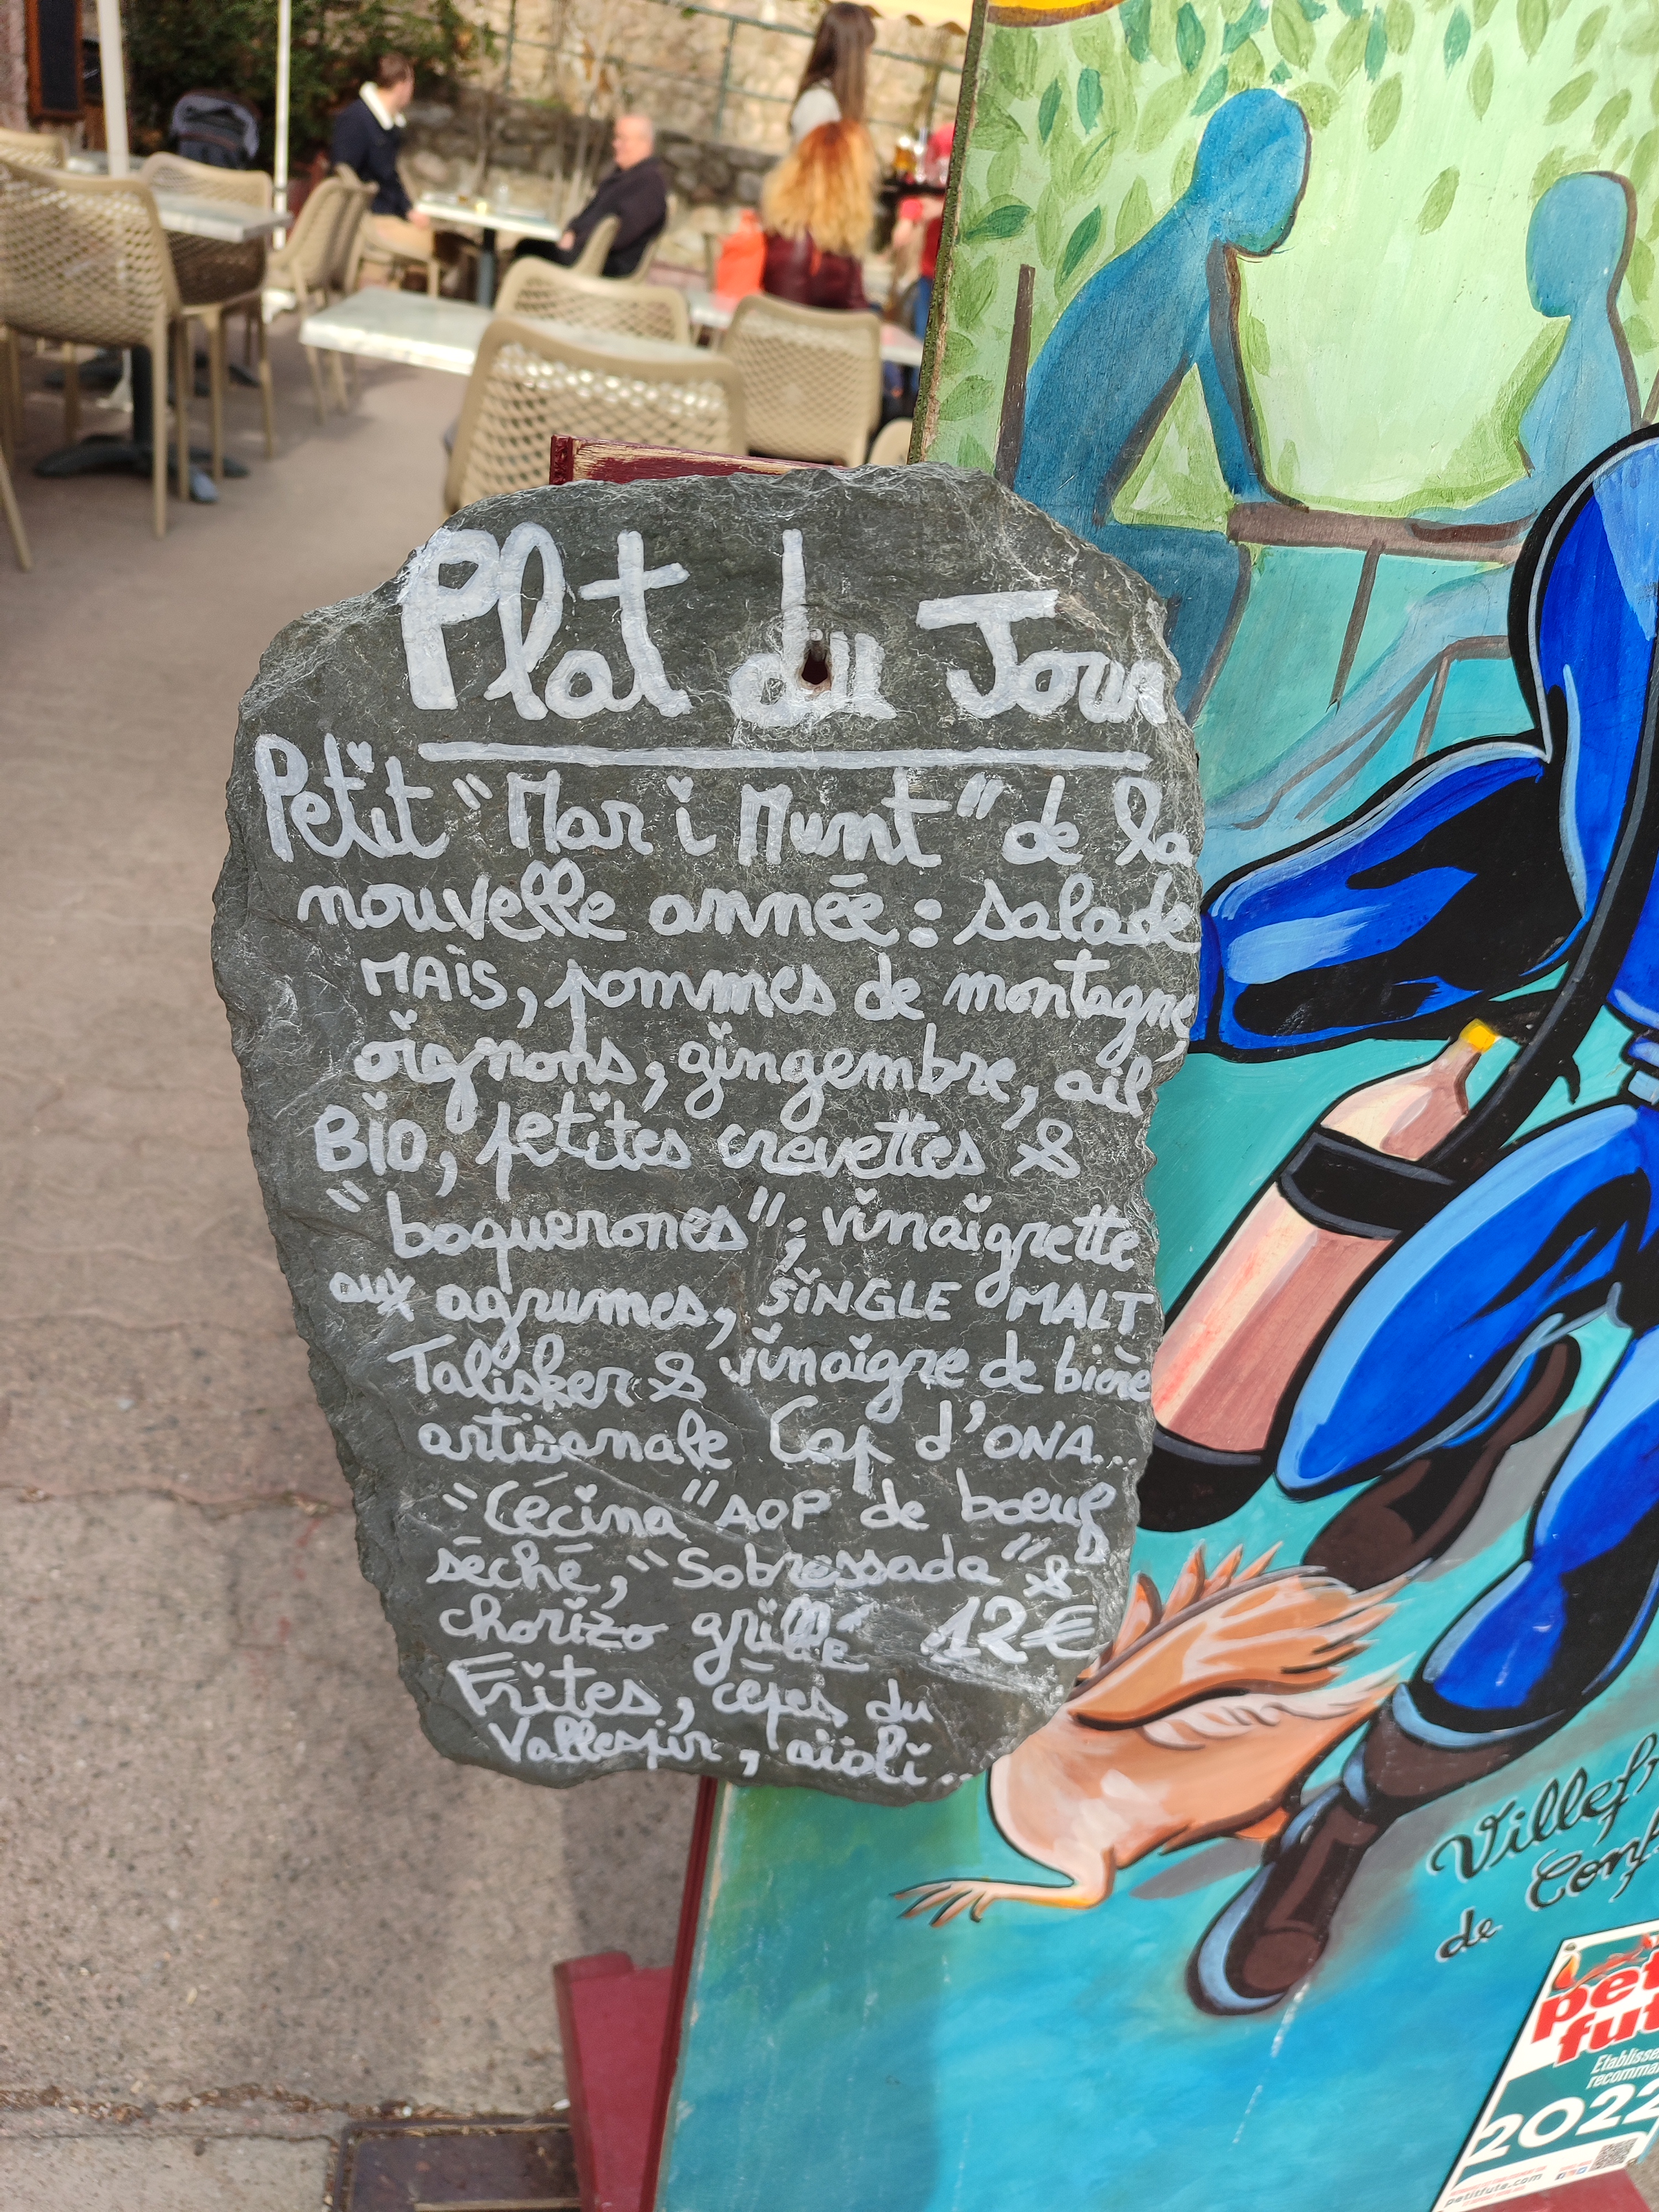 Plat du Jour
Petit "Mar i Munt" de la
nouvelle année : salade
MAïS, pommes de montagne,
oignons, gingembre, ail
BiO, petites crevettes &
"boquerones"; vinaigrette
aux agrumes, SiNGLE MALT
Talisker & vinaigre de bière
artisanale Cap d'ONA...
"Cécina" AOP de boeuf
séché, "Sobressada" &
chorizo grillé 12€
Frites, cèpes du
Vallespir, aïoli...
Villef
de Conf
pet
fut
Etablisse
recomma
2022
petitfute.com